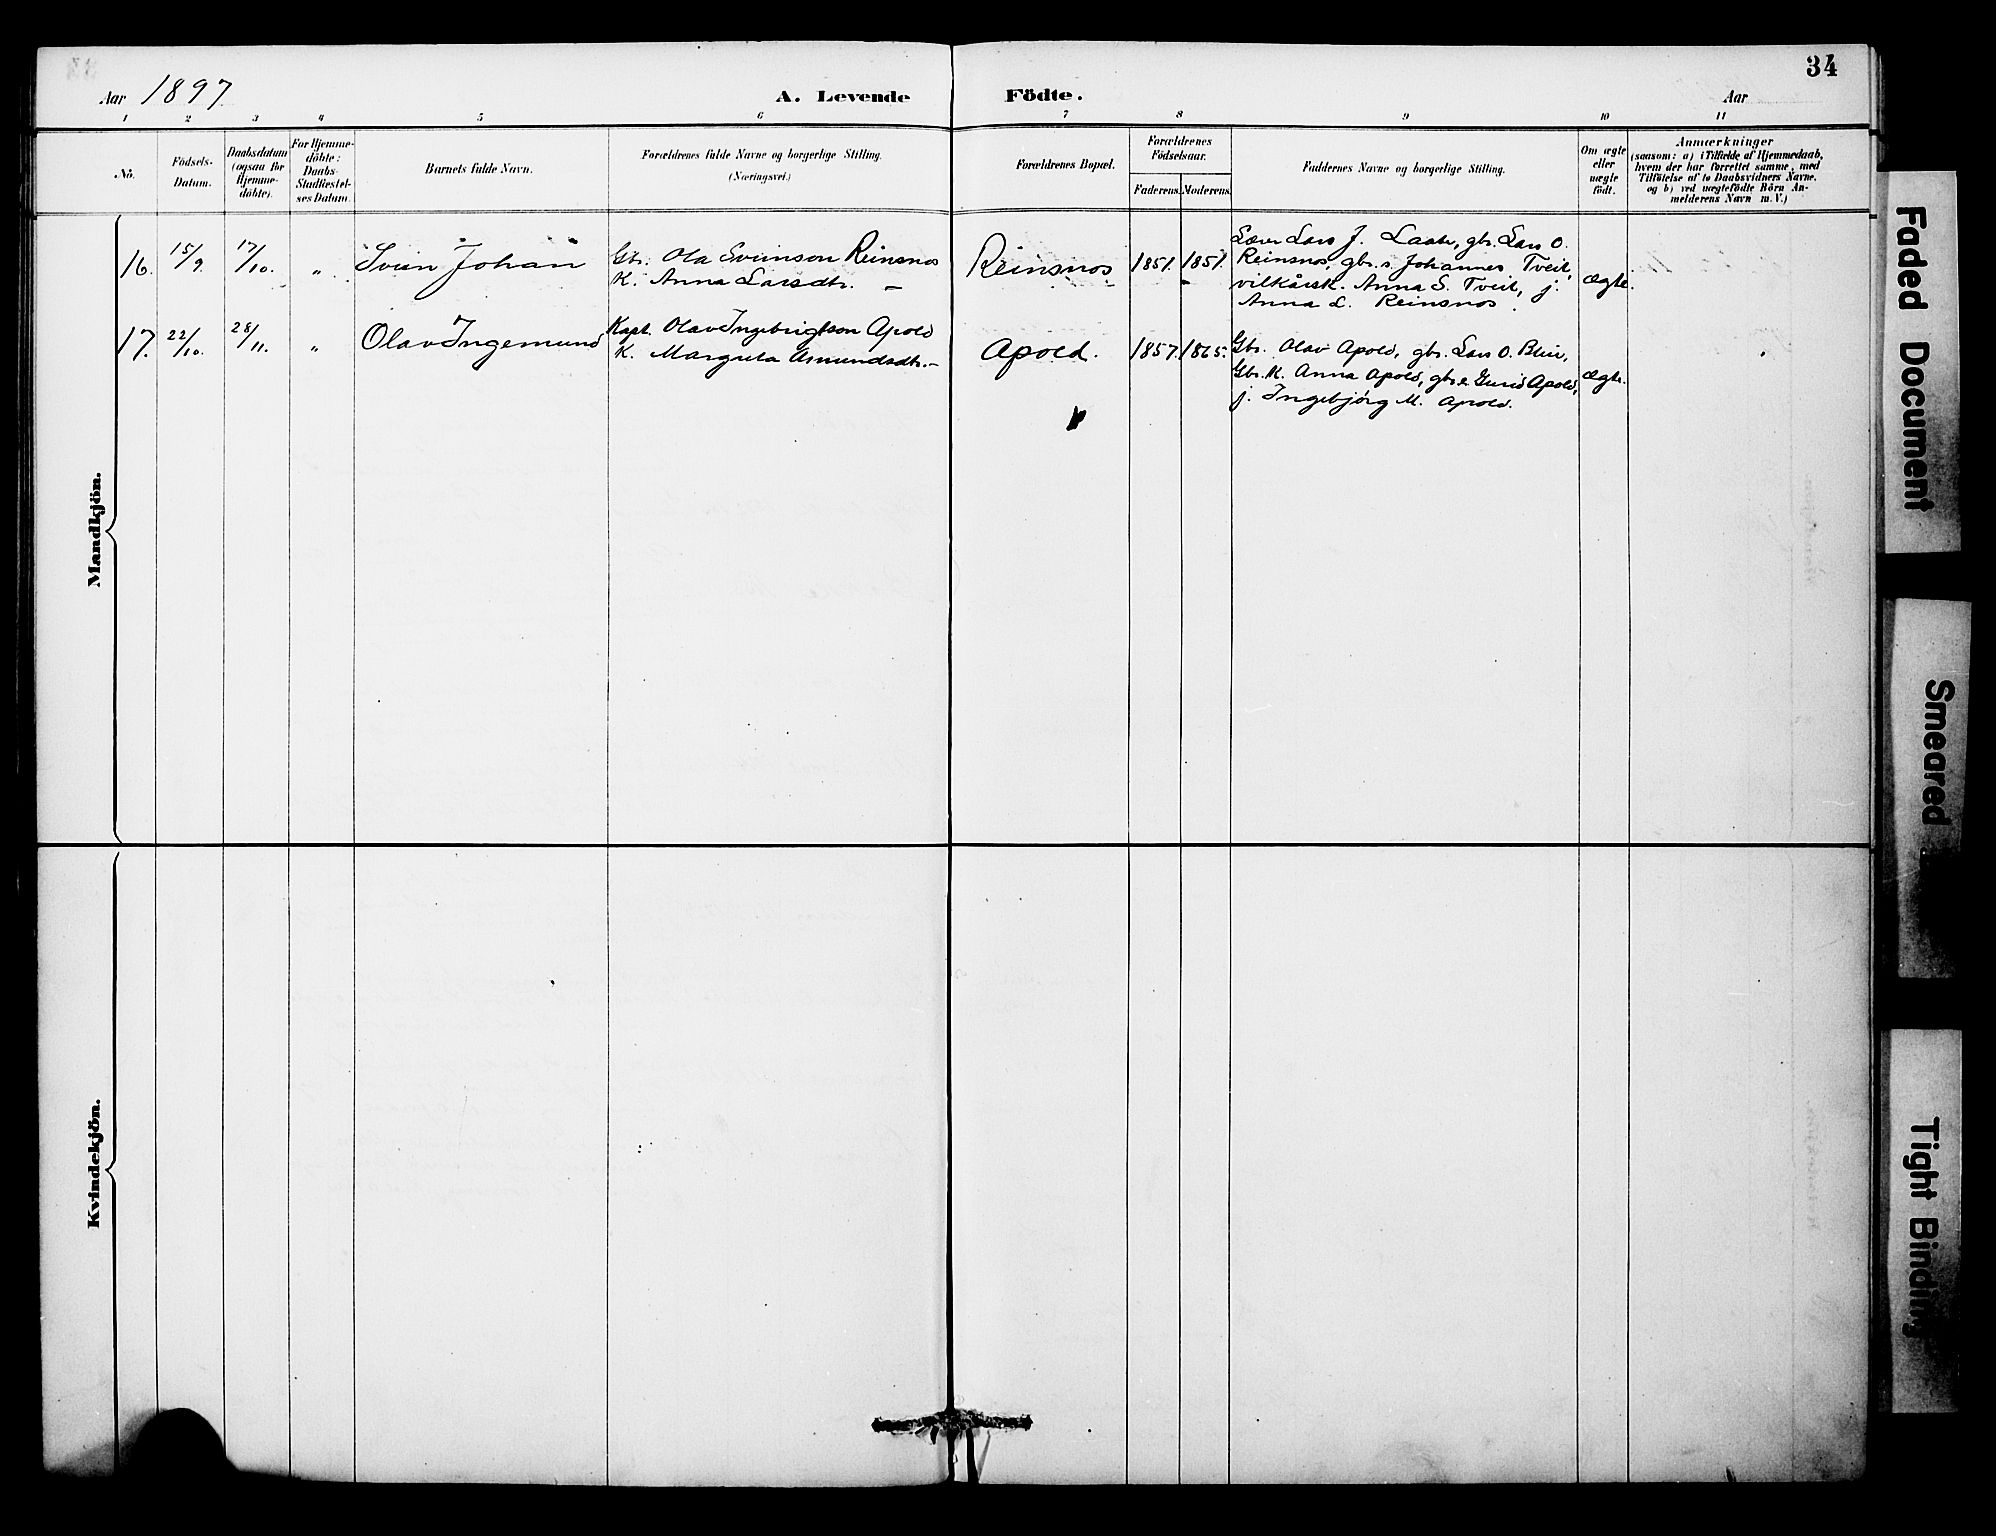 34
Aar 1897 A. Levende Födte. Aar
1 2 3 4 5 6 7 8 9 10 11
No.
Födsels-
Datum.
Daabsdatum
(ogsaa for
Hjemme-
döbte).
For Hjemme-
döbte:
Daabs-
Stadfæstel-
ses Datum.
Barnets fulde Navn.
Forældrenes fulde Navne og borgerlige Stilling.
(Næringsvei.)
Forældrenes Bopæl.
Forældrenes
Födselsaar.
Faderens. Moderens.
Faddernes Navne og borgerlige Stilling.
Om ægte
eller
uægte
födt.
Anmærkninger
(saasom: a) i Tilfælde af Hjemmedaab,
hvem der har forrettet samme, med
Tilföielse af to Daabsvidners Navne,
og b) ved uægtefödte Börn An-
melderens Navn m. V.)
Mandkjön.
16. 15/9. 17/10. " Svein Johan
Gbr. Ola Sveinson Reinsnos
K. Anna Larsdtr. –
Reinsnos 1851. 1851.
Lærer Lars J. Laate, gbr. Lars O.
Reinsnos, gbr. s. Johannes Tveit,
vilkårsk. Anna S. Tveit, j.
Anna L. Reinsnos.
ægte.
17. 22/10. 28/11. " Olav Ingemund
Kapt. Olav Ingebrigtson Apold
K. Margreta Amundsdtr. –
Apold. 1857. 1865.
Gbr. Olav Apold, gbr. Lars O. Bleie,
Gbr. K. Anna Apold, gbr. e. Gurid Apold,
j. Ingebjörg M. Apold.
ægte.
Kvindekjön.
Faded Document
Smeared
Tight Binding